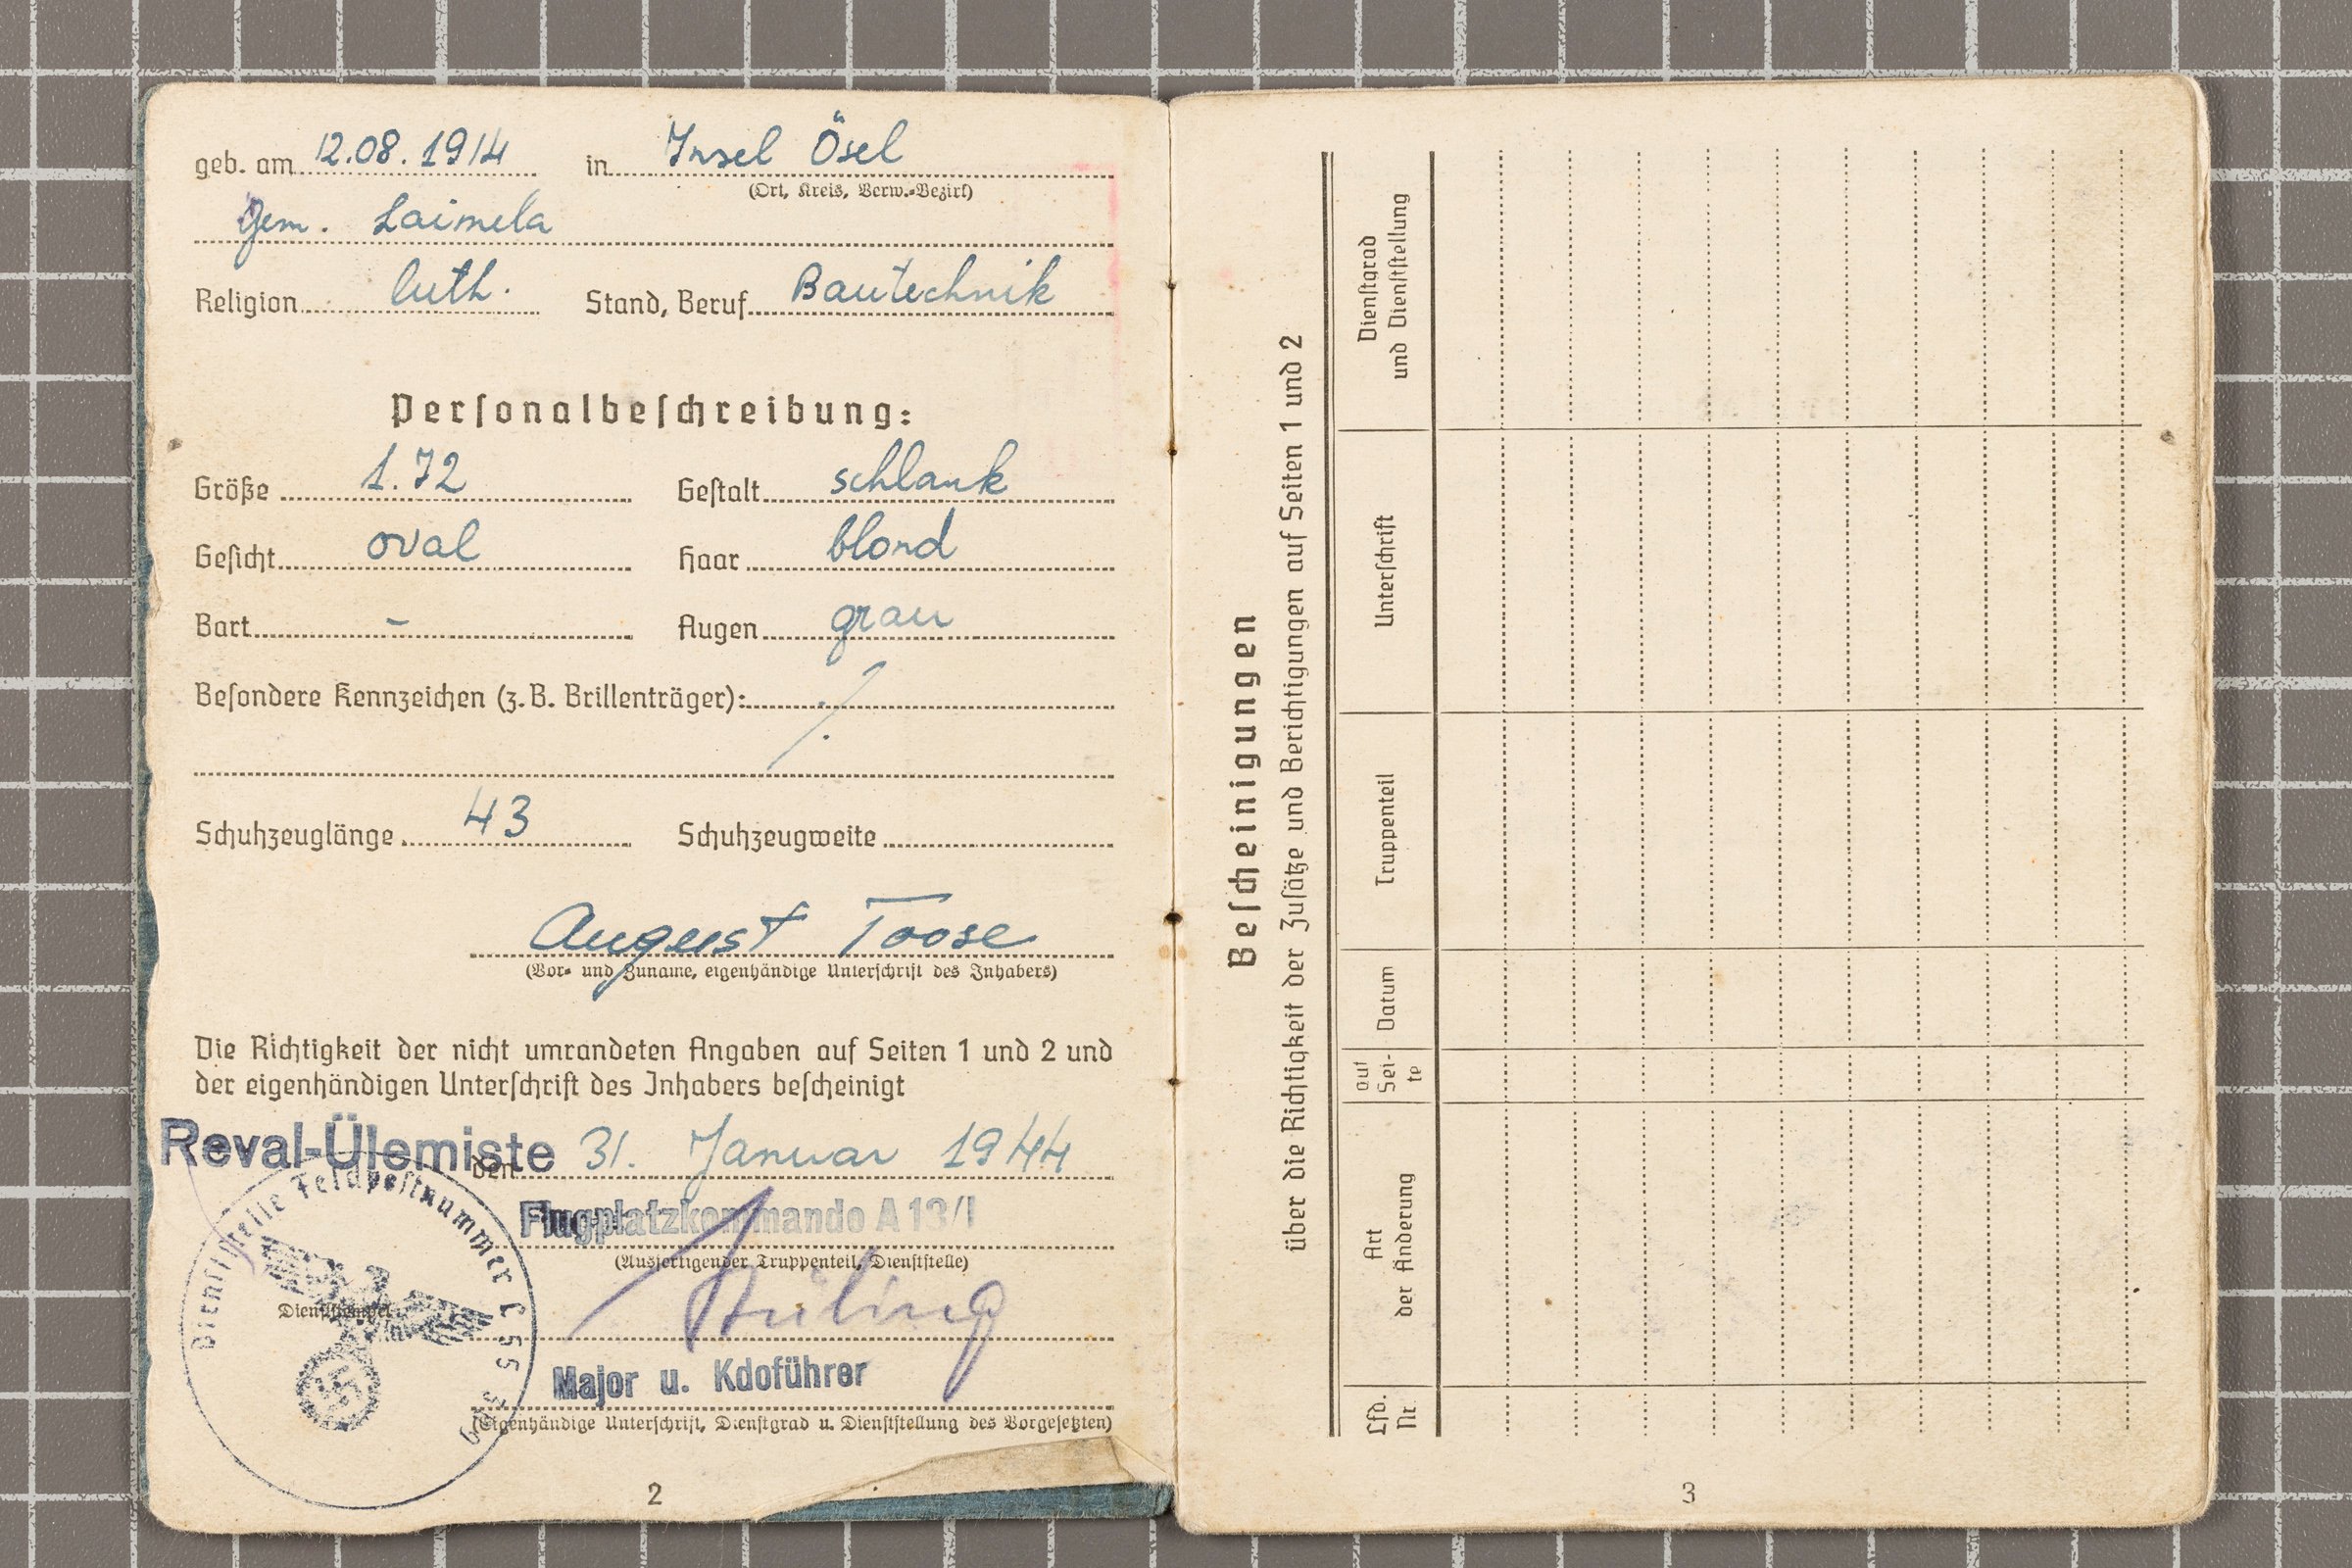 geb. am 12.08.1914 in Insel Ösel
(Ort, Kreis, Verw.-Bezirk)
Gem. Laimela
Religion luth. Stand, Beruf Bautechnik
Personalbeschreibung:
Größe 1.72 Gestalt schlank
Gesicht oval Haar blond
Bart - Augen grau
Besondere Kennzeichen (z. B. Brillenträger): ./.
Schuhzeuglänge 43 Schuhzeugweite
August Toose
(Vor- und Zuname, eigenhändige Unterschrift des Inhabers)
Die Richtigkeit der nicht umrandeten Angaben auf Seiten 1 und 2 und
der eigenhändigen Unterschrift des Inhabers bescheinigt
Reval-Ülemiste den 31. Januar 1944
Flugplatzkommando A 13/I
(Ausfertigender Truppenteil, Dienststelle)
Dienststelle Feldpostnummer L 55
Dienststempel
Major u. Kdoführer
(Eigenhändige Unterschrift, Dienstgrad u. Dienststellung des Vorgesetzten)
2
Bescheinigungen
über die Richtigkeit der Zusätze und Berichtigungen auf Seiten 1 und 2
Lfd. Nr.
Art der Änderung
auf Sei-te
Datum
Truppenteil
Unterschrift
Dienstgrad und Dienststellung
3